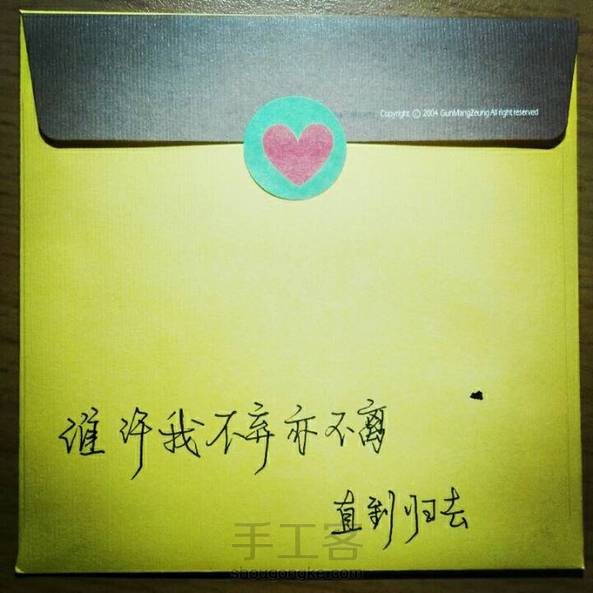 Copyright ⓒ 2004 GunMangZeung All right reserved
谁许我不弃亦不离
直到归去
手工客
shougongke.com